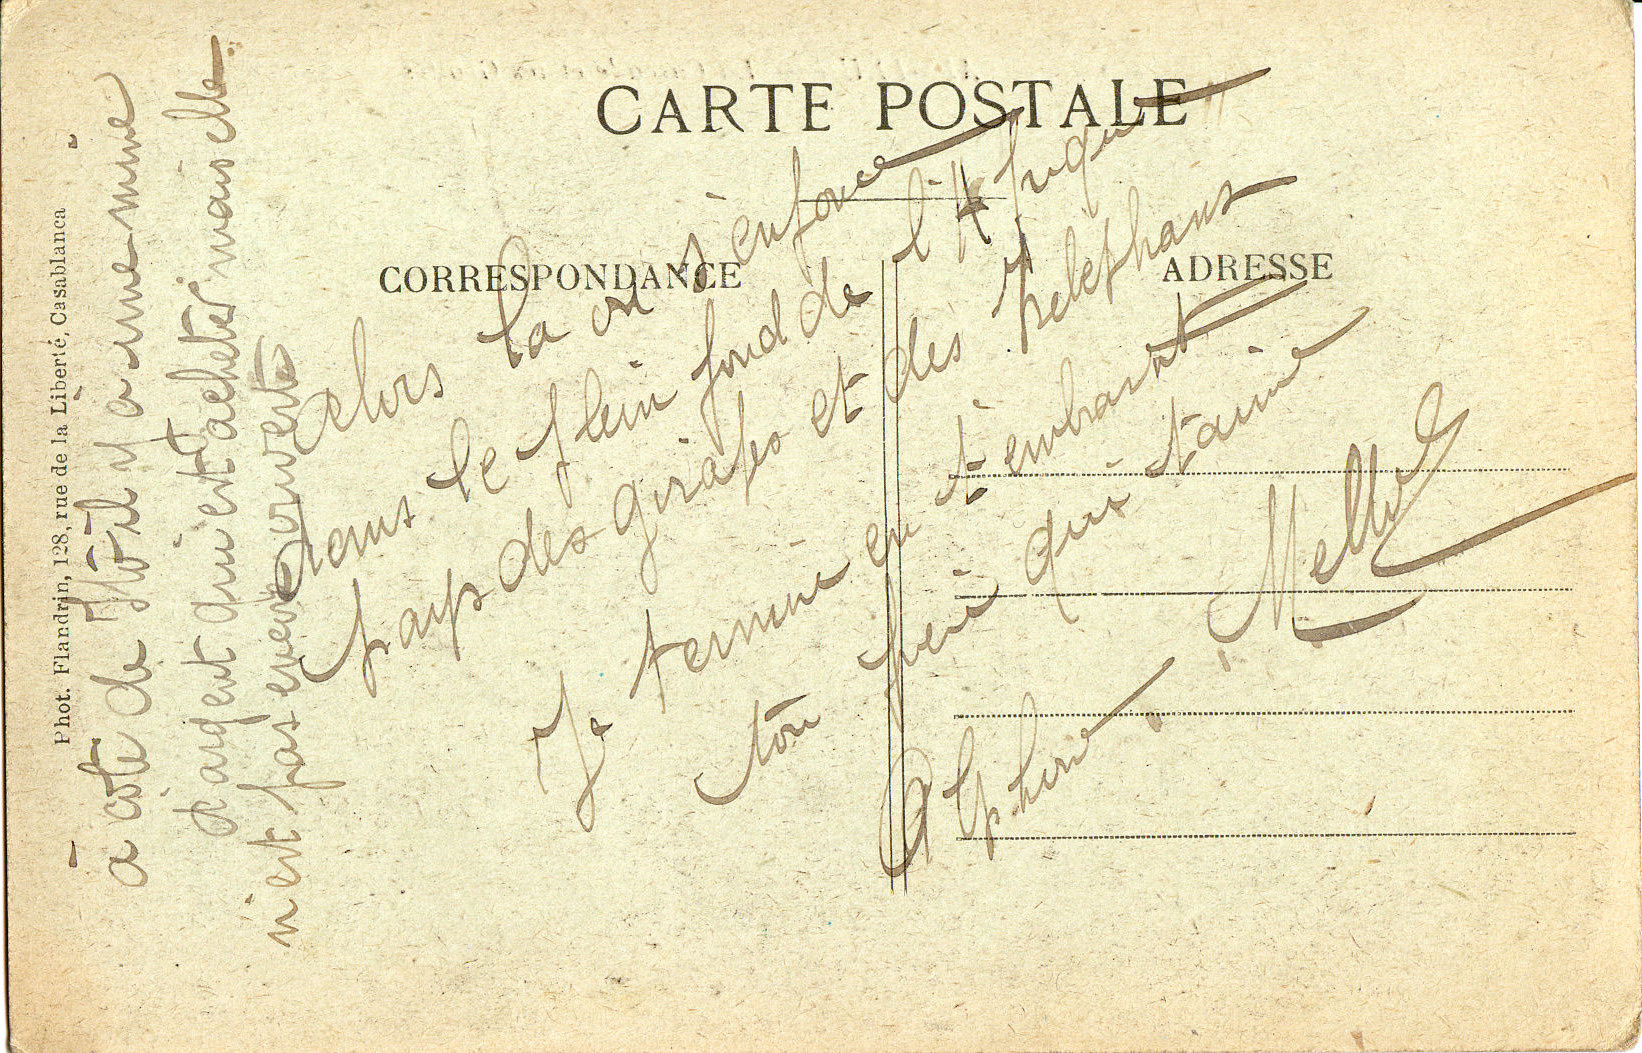 CARTE POSTALE
CORRESPONDANCE
ADRESSE
Phot. Flandrin, 128, rue de la Liberté, Casablanca
à côté de y a une mine
d argent qui est à acheter mais elle
n'est pas encore ouverte
alors la on s'enfonce
dans le plein fond de l'Afrique
pays des girafes et des helephants
Je termine en t'embrassant
ton frère qui t'aime
Alphonse